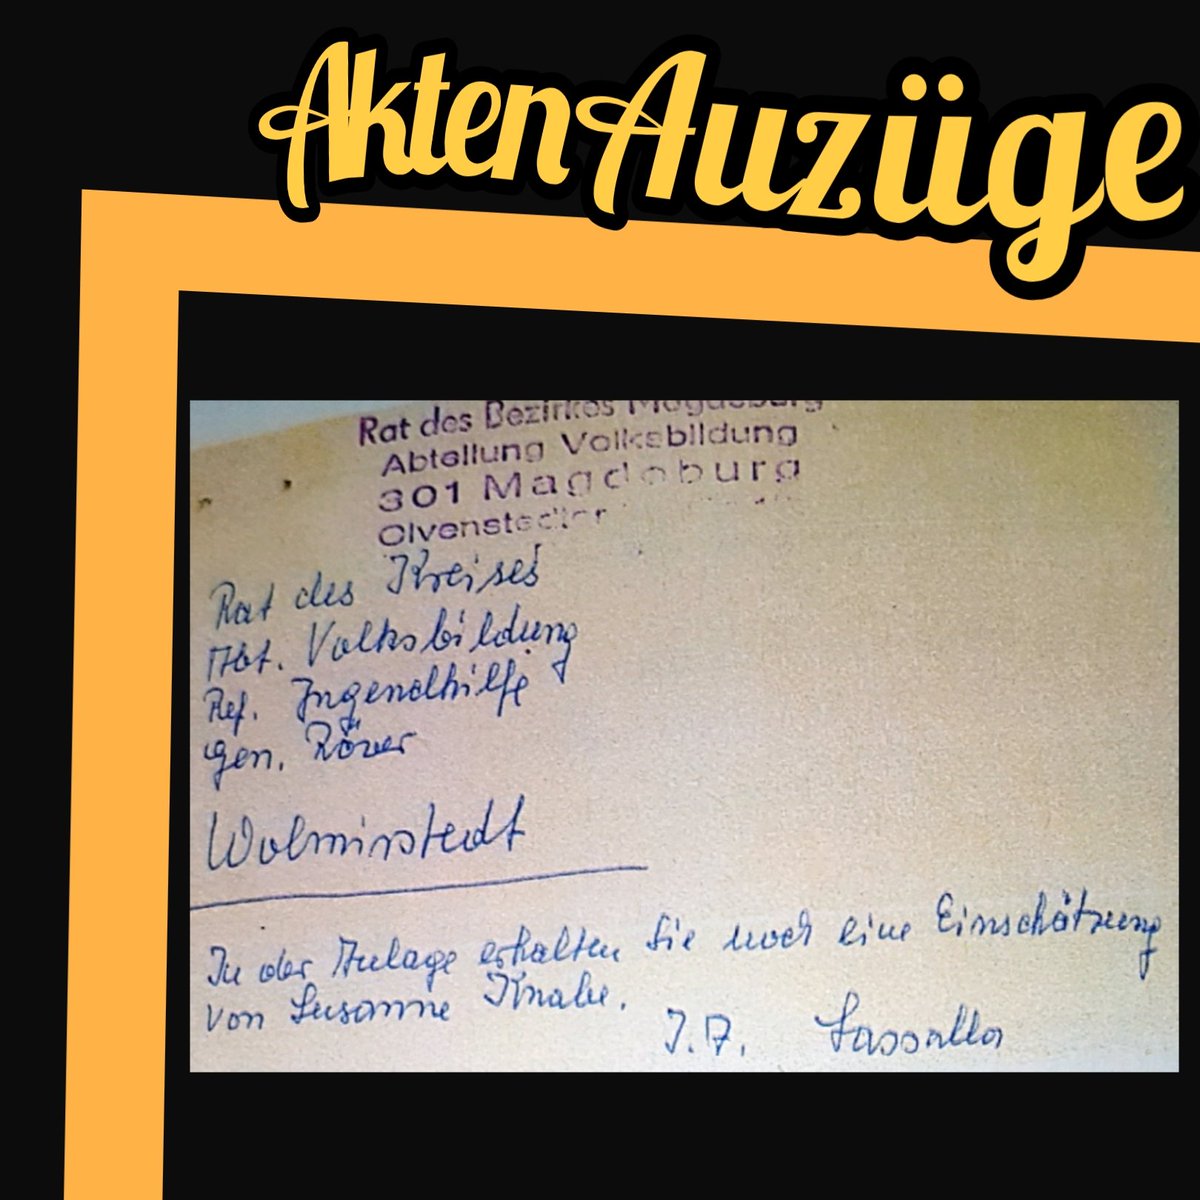 AktenAuzüge
Rat des Bezirkes Magdeburg
Abteilung Volksbildung
301 Magdeburg
Olvenstedter
Rat des Kreises
Abt. Volksbildung
Ref. Jugendhilfe
Gen. Röver
Wolmirstedt
In der Anlage erhalten Sie noch eine Einschätzung
von Susanne Knabe.
I.A.